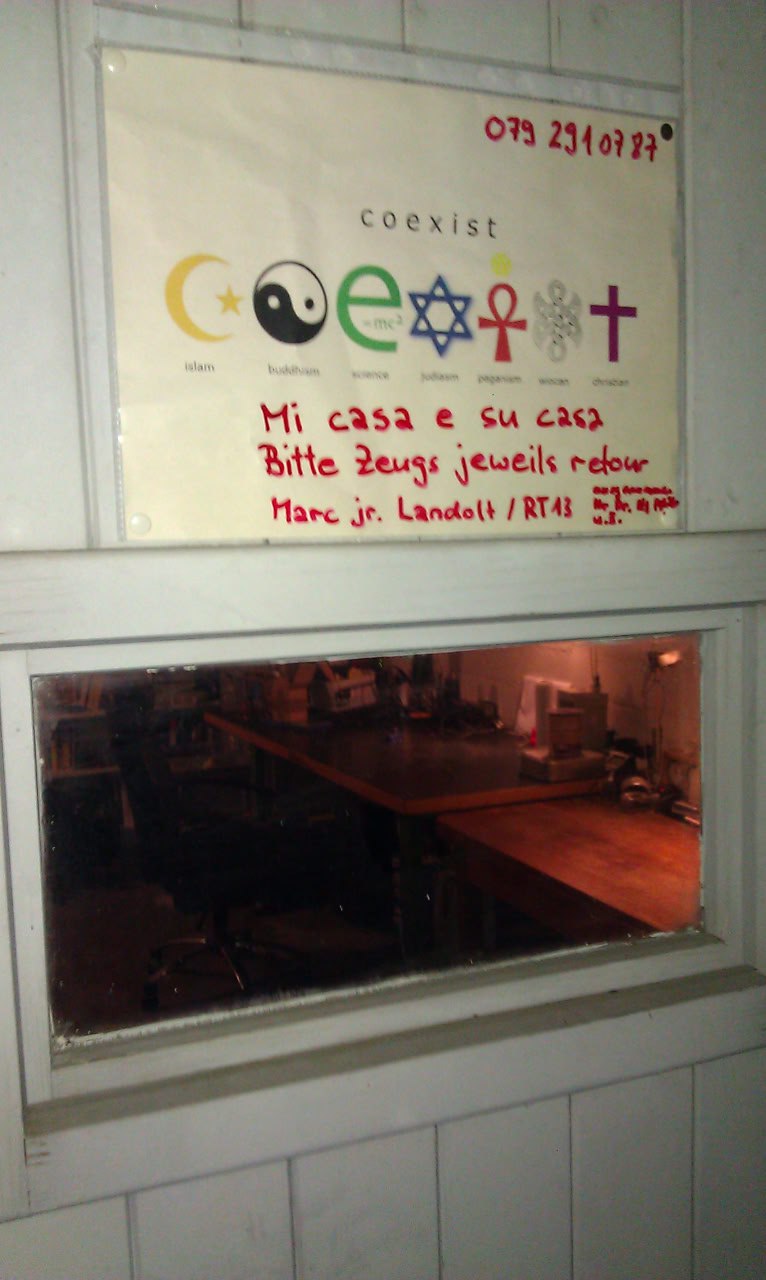 079 291 07 87
coexist
e
=mc²
islam buddhism science judaism paganism wiccan christian
Mi casa e su casa
Bitte Zeugs jeweils retour
Marc jr. Landolt / RT13
u.s.